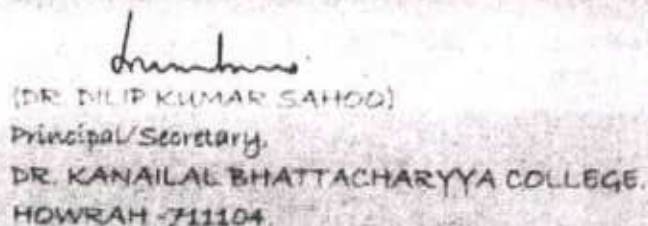 (DR. DILIP KUMAR SAHOO)
Principal/Secretary,
DR. KANAILAL BHATTACHARYYA COLLEGE.
HOWRAH -711104.